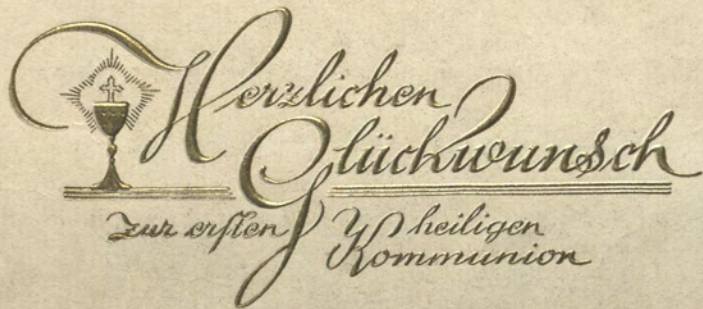 Herzlichen
Glückwunsch
zur ersten heiligen
Kommunion